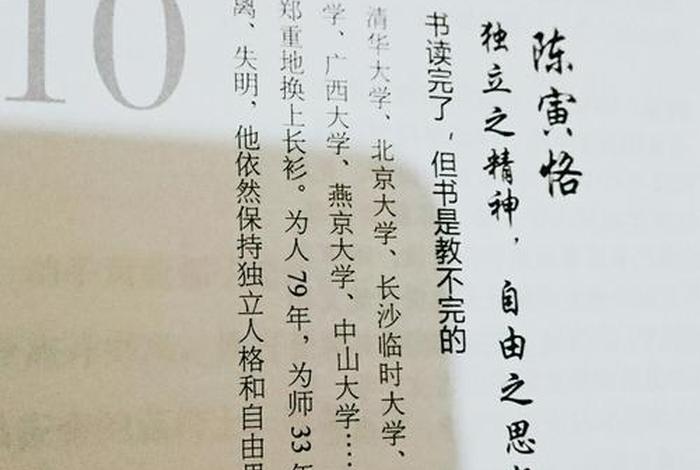 陈寅恪
独立之精神，自由之思
书读完了，但书是教不完的
清华大学、北京大学、长沙临时大学、
学、广西大学、燕京大学、中山大学……
郑重地换上长衫。为人79年，为师33年
离、失明，他依然保持独立人格和自由思
10